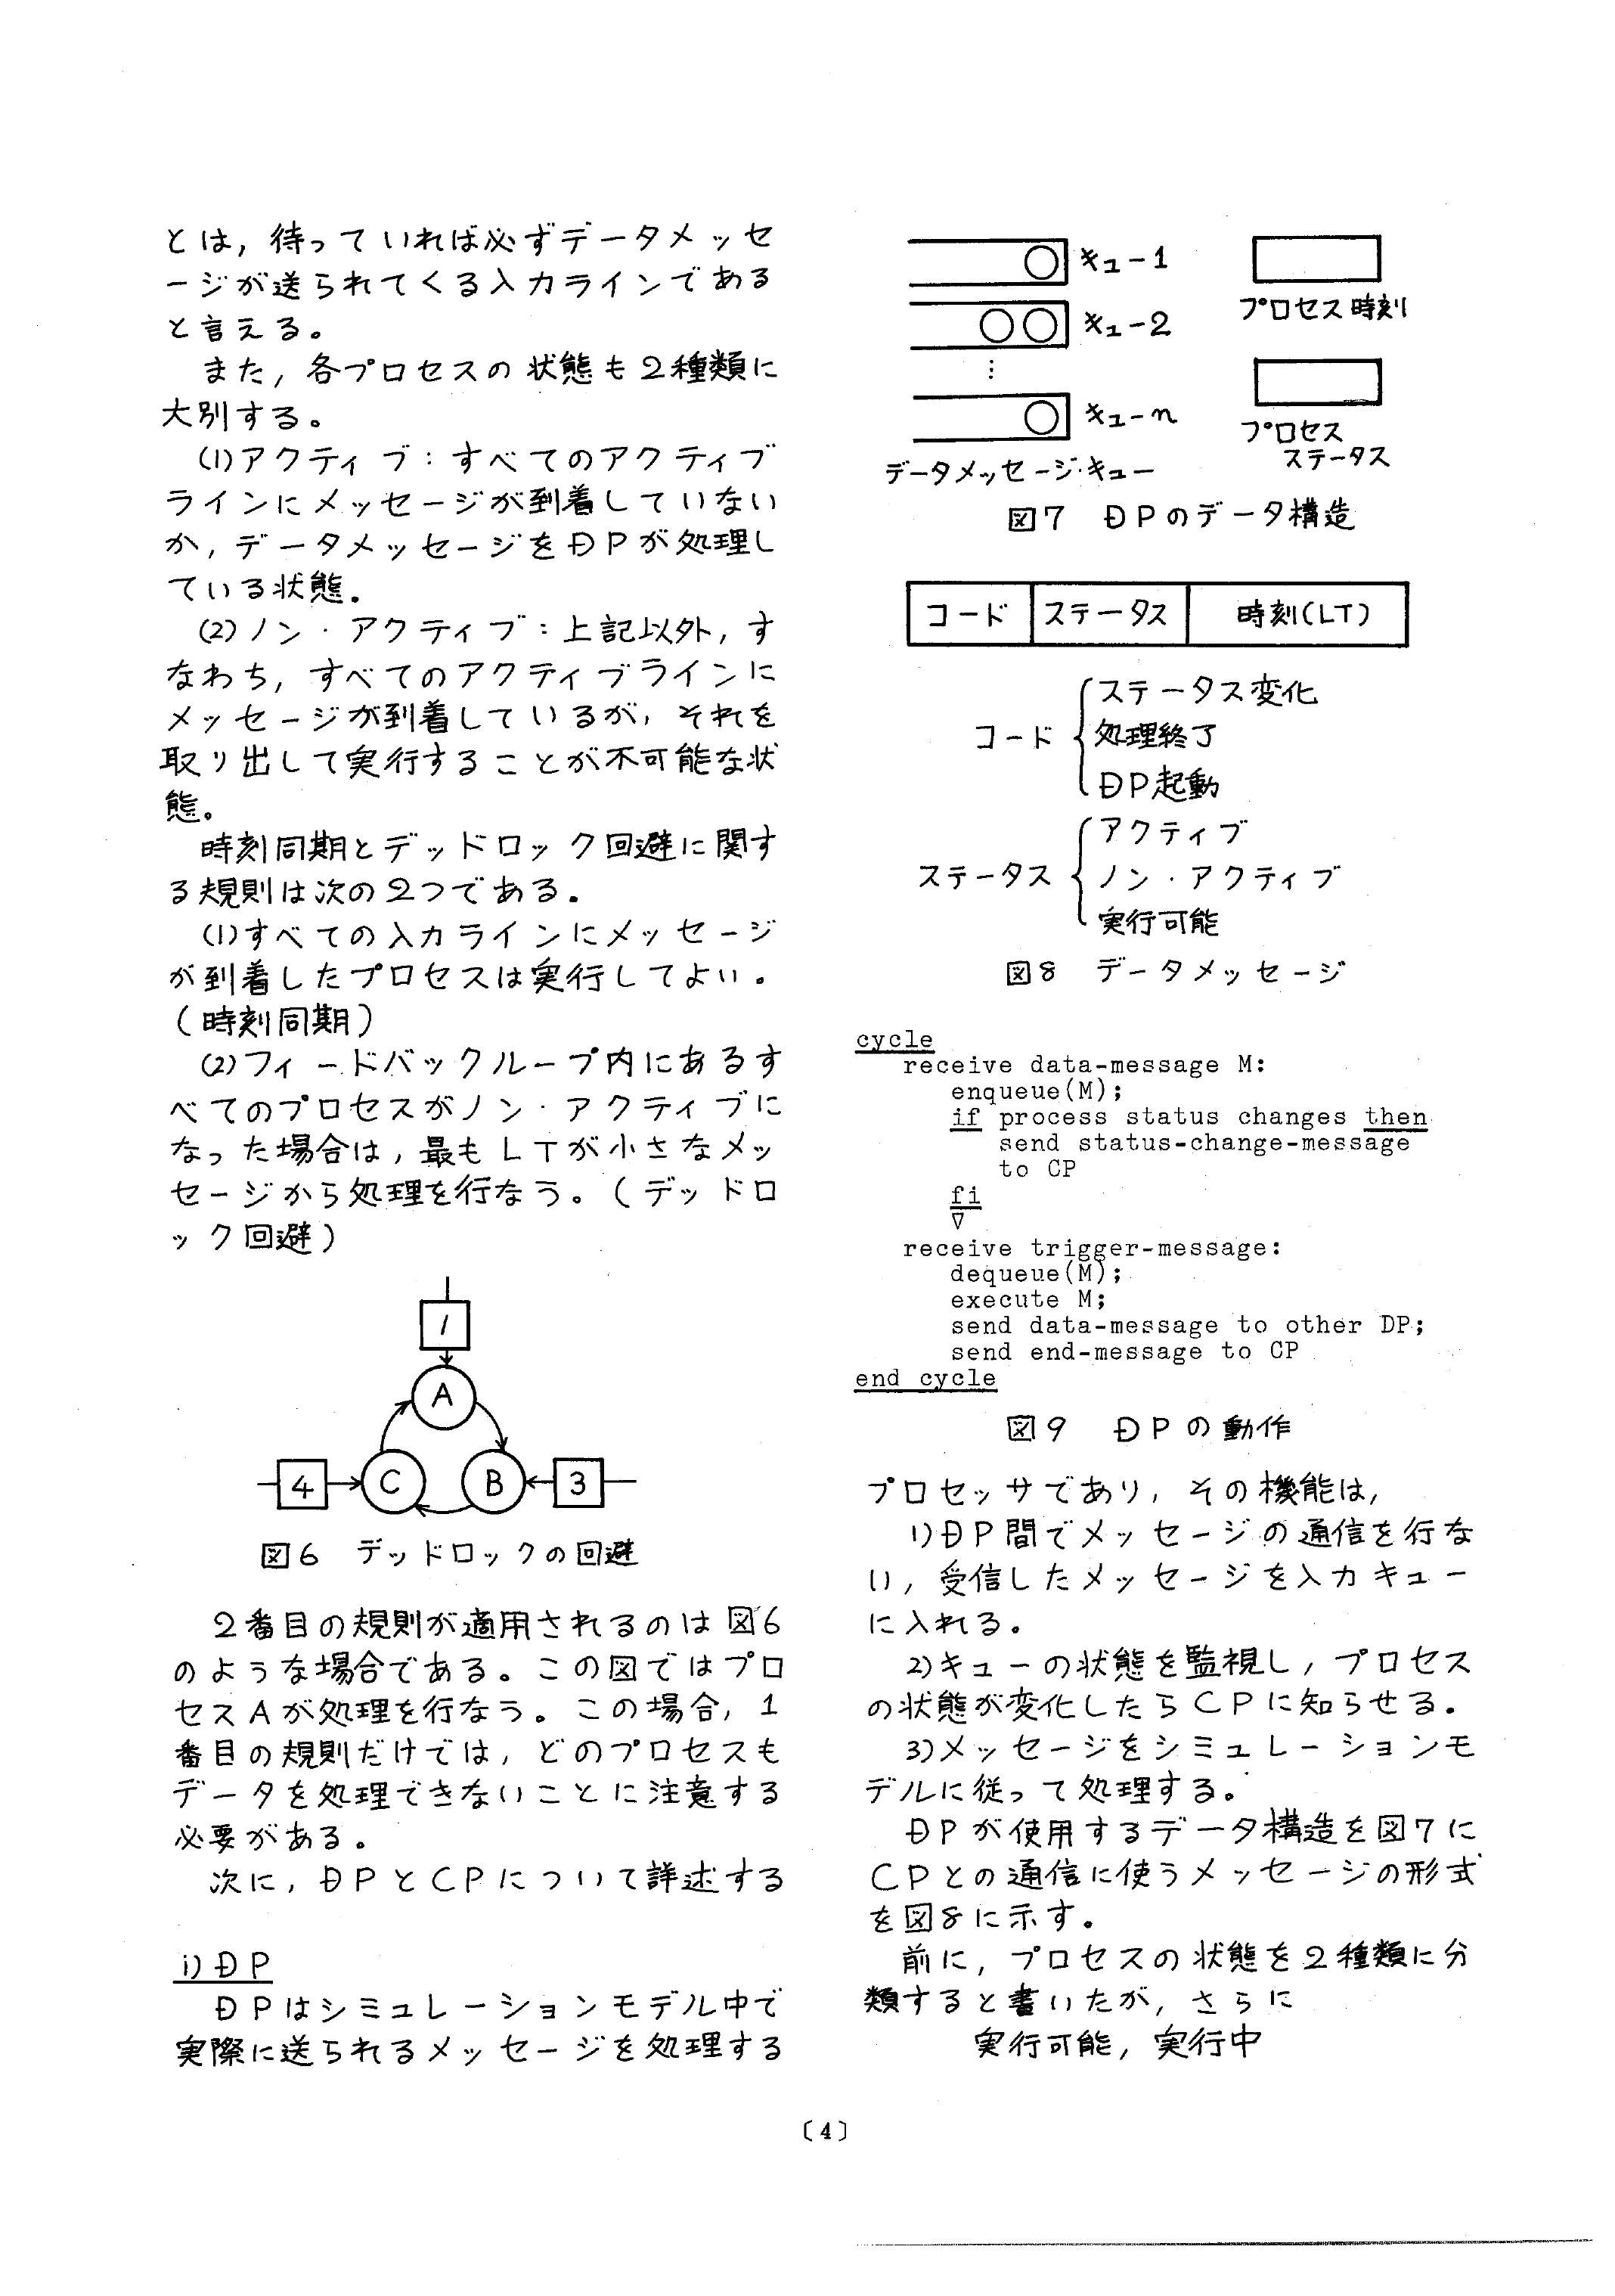 とは,待っていれば必ずデータメッセ
ージが送られてくる入力ラインである
と言える。
また,各プロセスの状態も2種類に
大別する。
(1)アクティブ:すべてのアクティブ
ラインにメッセージが到着していない
か,データメッセージをDPが処理し
ている状態.
(2)ノン・アクティブ:上記以外,す
なわち,すべてのアクティブラインに
メッセージが到着しているが,それを
取り出して実行することが不可能な状
態。
時刻同期とデッドロック回避に関す
る規則は次の2つである.
(1)すべての入力ラインにメッセージ
が到着したプロセスは実行してよい.
(時刻同期)
(2)フィードバックループ内にあるす
べてのプロセスがノン・アクティブに
なった場合は,最もLTが小さなメッ
セージから処理を行なう。(デッドロ
ック回避)
1
A
4
C
B
3
図6 デッドロックの回避
2番目の規則が適用されるのは図6
のような場合である。この図ではプロ
セスAが処理を行なう。この場合,1
番目の規則だけでは,どのプロセスも
データを処理できないことに注意する
必要がある。
次に,DPとCPについて詳述する
i)DP
DPはシミュレーションモデル中で
実際に送られるメッセージを処理する
キュー1
キュー2
⋮
キューn
データメッセージ・キュー
プロセス時刻
プロセス
ステータス
図7 DPのデータ構造
コード ステータス 時刻(LT)
コード
ステータス変化
処理終了
DP起動
ステータス
アクティブ
ノン・アクティブ
実行可能
図8 データメッセージ
cycle
receive data-message M:
enqueue(M);
if process status changes then
send status-change-message
to CP
fi
▽
receive trigger-message:
dequeue(M);
execute M;
send data-message to other DP;
send end-message to CP
end cycle
図9 DPの動作
プロセッサであり,その機能は,
1)DP間でメッセージの通信を行な
い,受信したメッセージを入力キュー
に入れる.
2)キューの状態を監視し,プロセス
の状態が変化したらCPに知らせる.
3)メッセージをシミュレーションモ
デルに従って処理する。
DPが使用するデータ構造を図7に
CPとの通信に使うメッセージの形式
を図8に示す。
前に,プロセスの状態を2種類に分
類すると書いたが,さらに
実行可能,実行中
〔4〕